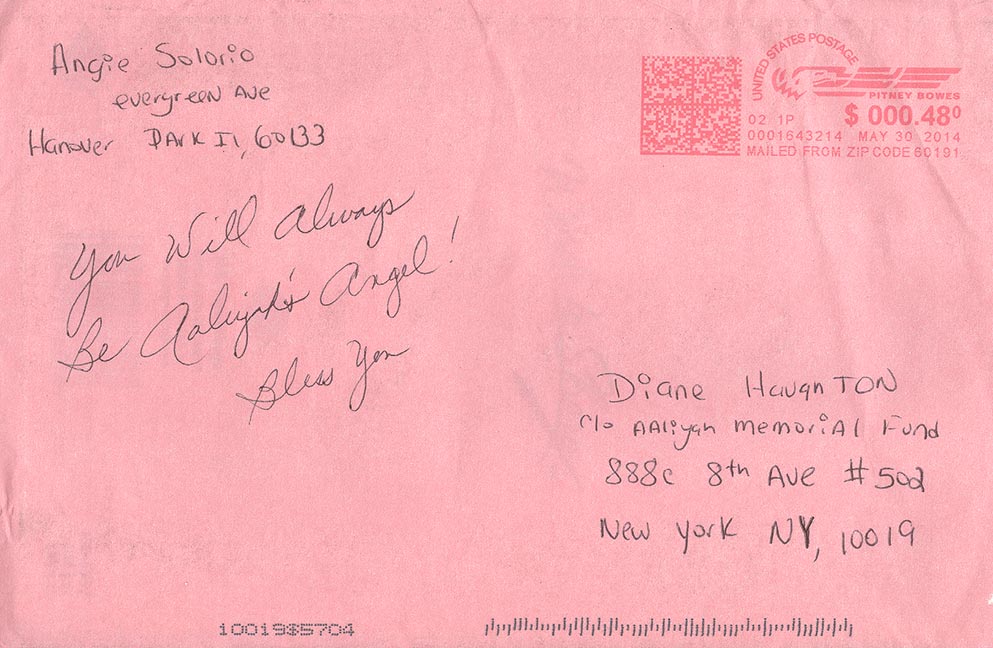 Angie Solorio
evergreen Ave
Hanover Park Il, 60133
UNITED STATES POSTAGE
PITNEY BOWES
02 1P
$ 000.48⁰
0001643214 MAY 30 2014
MAILED FROM ZIP CODE 60191
You Will Always
Be Aaliyah's Angel!
Bless You
Diane HaughTON
c/o AAliyah memoriAl Fund
888c 8th Ave #502
New York NY, 10019
10019$5704